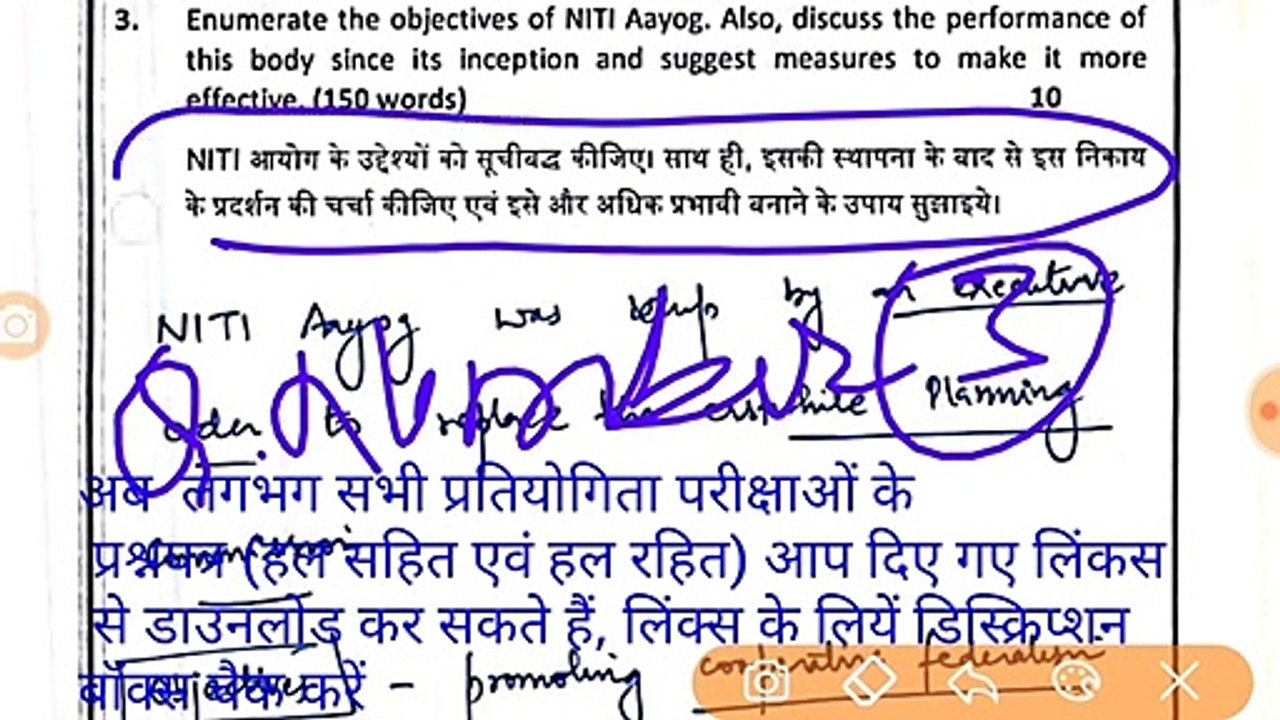 3. Enumerate the objectives of NITI Aayog. Also, discuss the performance of
this body since its inception and suggest measures to make it more
effective. (150 words) 10
NITI आयोग के उद्देश्यों को सूचीबद्ध कीजिए। साथ ही, इसकी स्थापना के वाद से इस निकाय
के प्रदर्शन की चर्चा कीजिए एवं इसे और अधिक प्रभावी वनाने के उपाय सुझाइये।
NITI Aayog was setup by an executive
order to replace erstwhile Planning
3
अब लगभग सभी प्रतियोगिता परीक्षाओं के
प्रश्नपत्र (हल सहित एवं हल रहित) आप दिए गए लिंकस
से डाउनलोड कर सकते हैं, लिंक्स के लियें डिस्क्रिप्शन
बॉक्स चैक करें
- promoting cooperative federalism